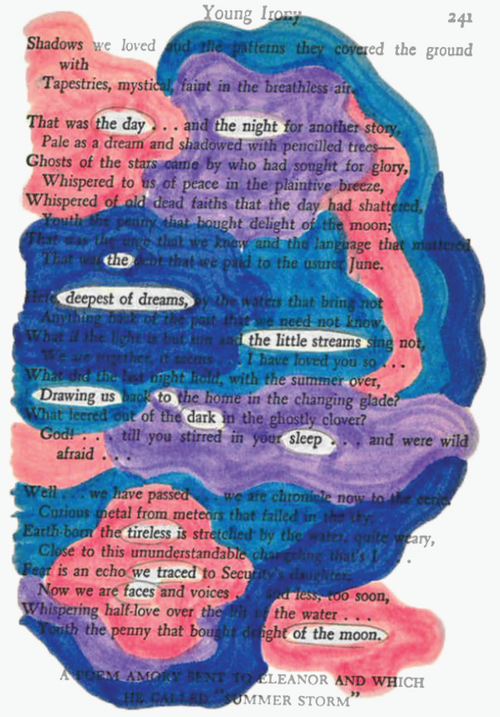 Young Irony 241
Shadows we loved and the patterns they covered the ground
with
Tapestries, mystical, faint in the breathless air.
That was the day . . . and the night for another story,
Pale as a dream and shadowed with pencilled trees—
Ghosts of the stars came by who had sought for glory,
Whispered to us of peace in the plaintive breeze,
Whispered of old dead faiths that the day had shattered,
Youth the penny that bought delight of the moon;
That was the urge that we knew and the language that mattered
That was the debt that we paid to the usurer June.
Here, deepest of dreams, by the waters that bring not
Anything back of the past that we need not know,
What if the light is but sun and the little streams sing not,
We are together, it seems . . . I have loved you so . . .
What did the last night hold, with the summer over,
Drawing us back to the home in the changing glade?
What leered out of the dark in the ghostly clover?
God! . . . till you stirred in your sleep . . . and were wild
afraid . . . .
Well . . . we have passed . . . we are chronicle now to the eerie.
Curious metal from meteors that failed in the sky;
Earth-born the tireless is stretched by the water, quite weary,
Close to this ununderstandable changeling that's I . . .
Fear is an echo we traced to Security's daughter,
Now we are faces and voices . . . and less, too soon,
Whispering half-love over the lilt of the water . . .
Youth the penny that bought delight of the moon.
A POEM AMORY SENT TO ELEANOR AND WHICH
HE CALLED "SUMMER STORM"